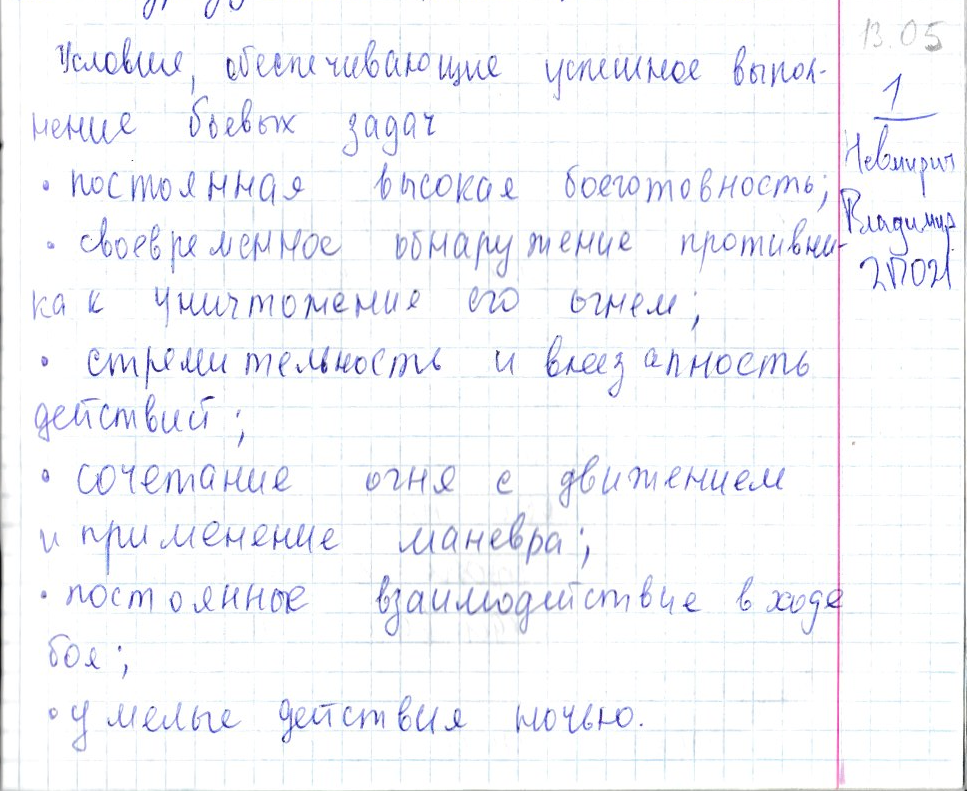 Условие, обеспечивающие успешное выпол-
нение боевых задач
• постоянная высокая боеготовность;
• своевременное обнаружение противни-
ка к уничтожение его огнем;
• стремительность и внезапность
действий;
• сочетание огня с движением
и применение маневра;
• постоянные взаимодействие в ходе
боя;
• умелые действия ночью.
13.05
1
Владимир